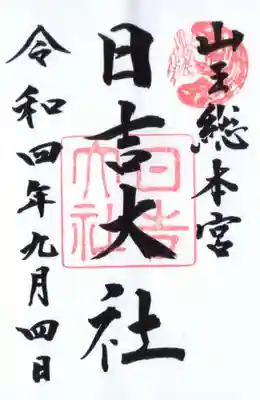 山王総本宮
日吉大社
日吉大社
令和四年九月四日